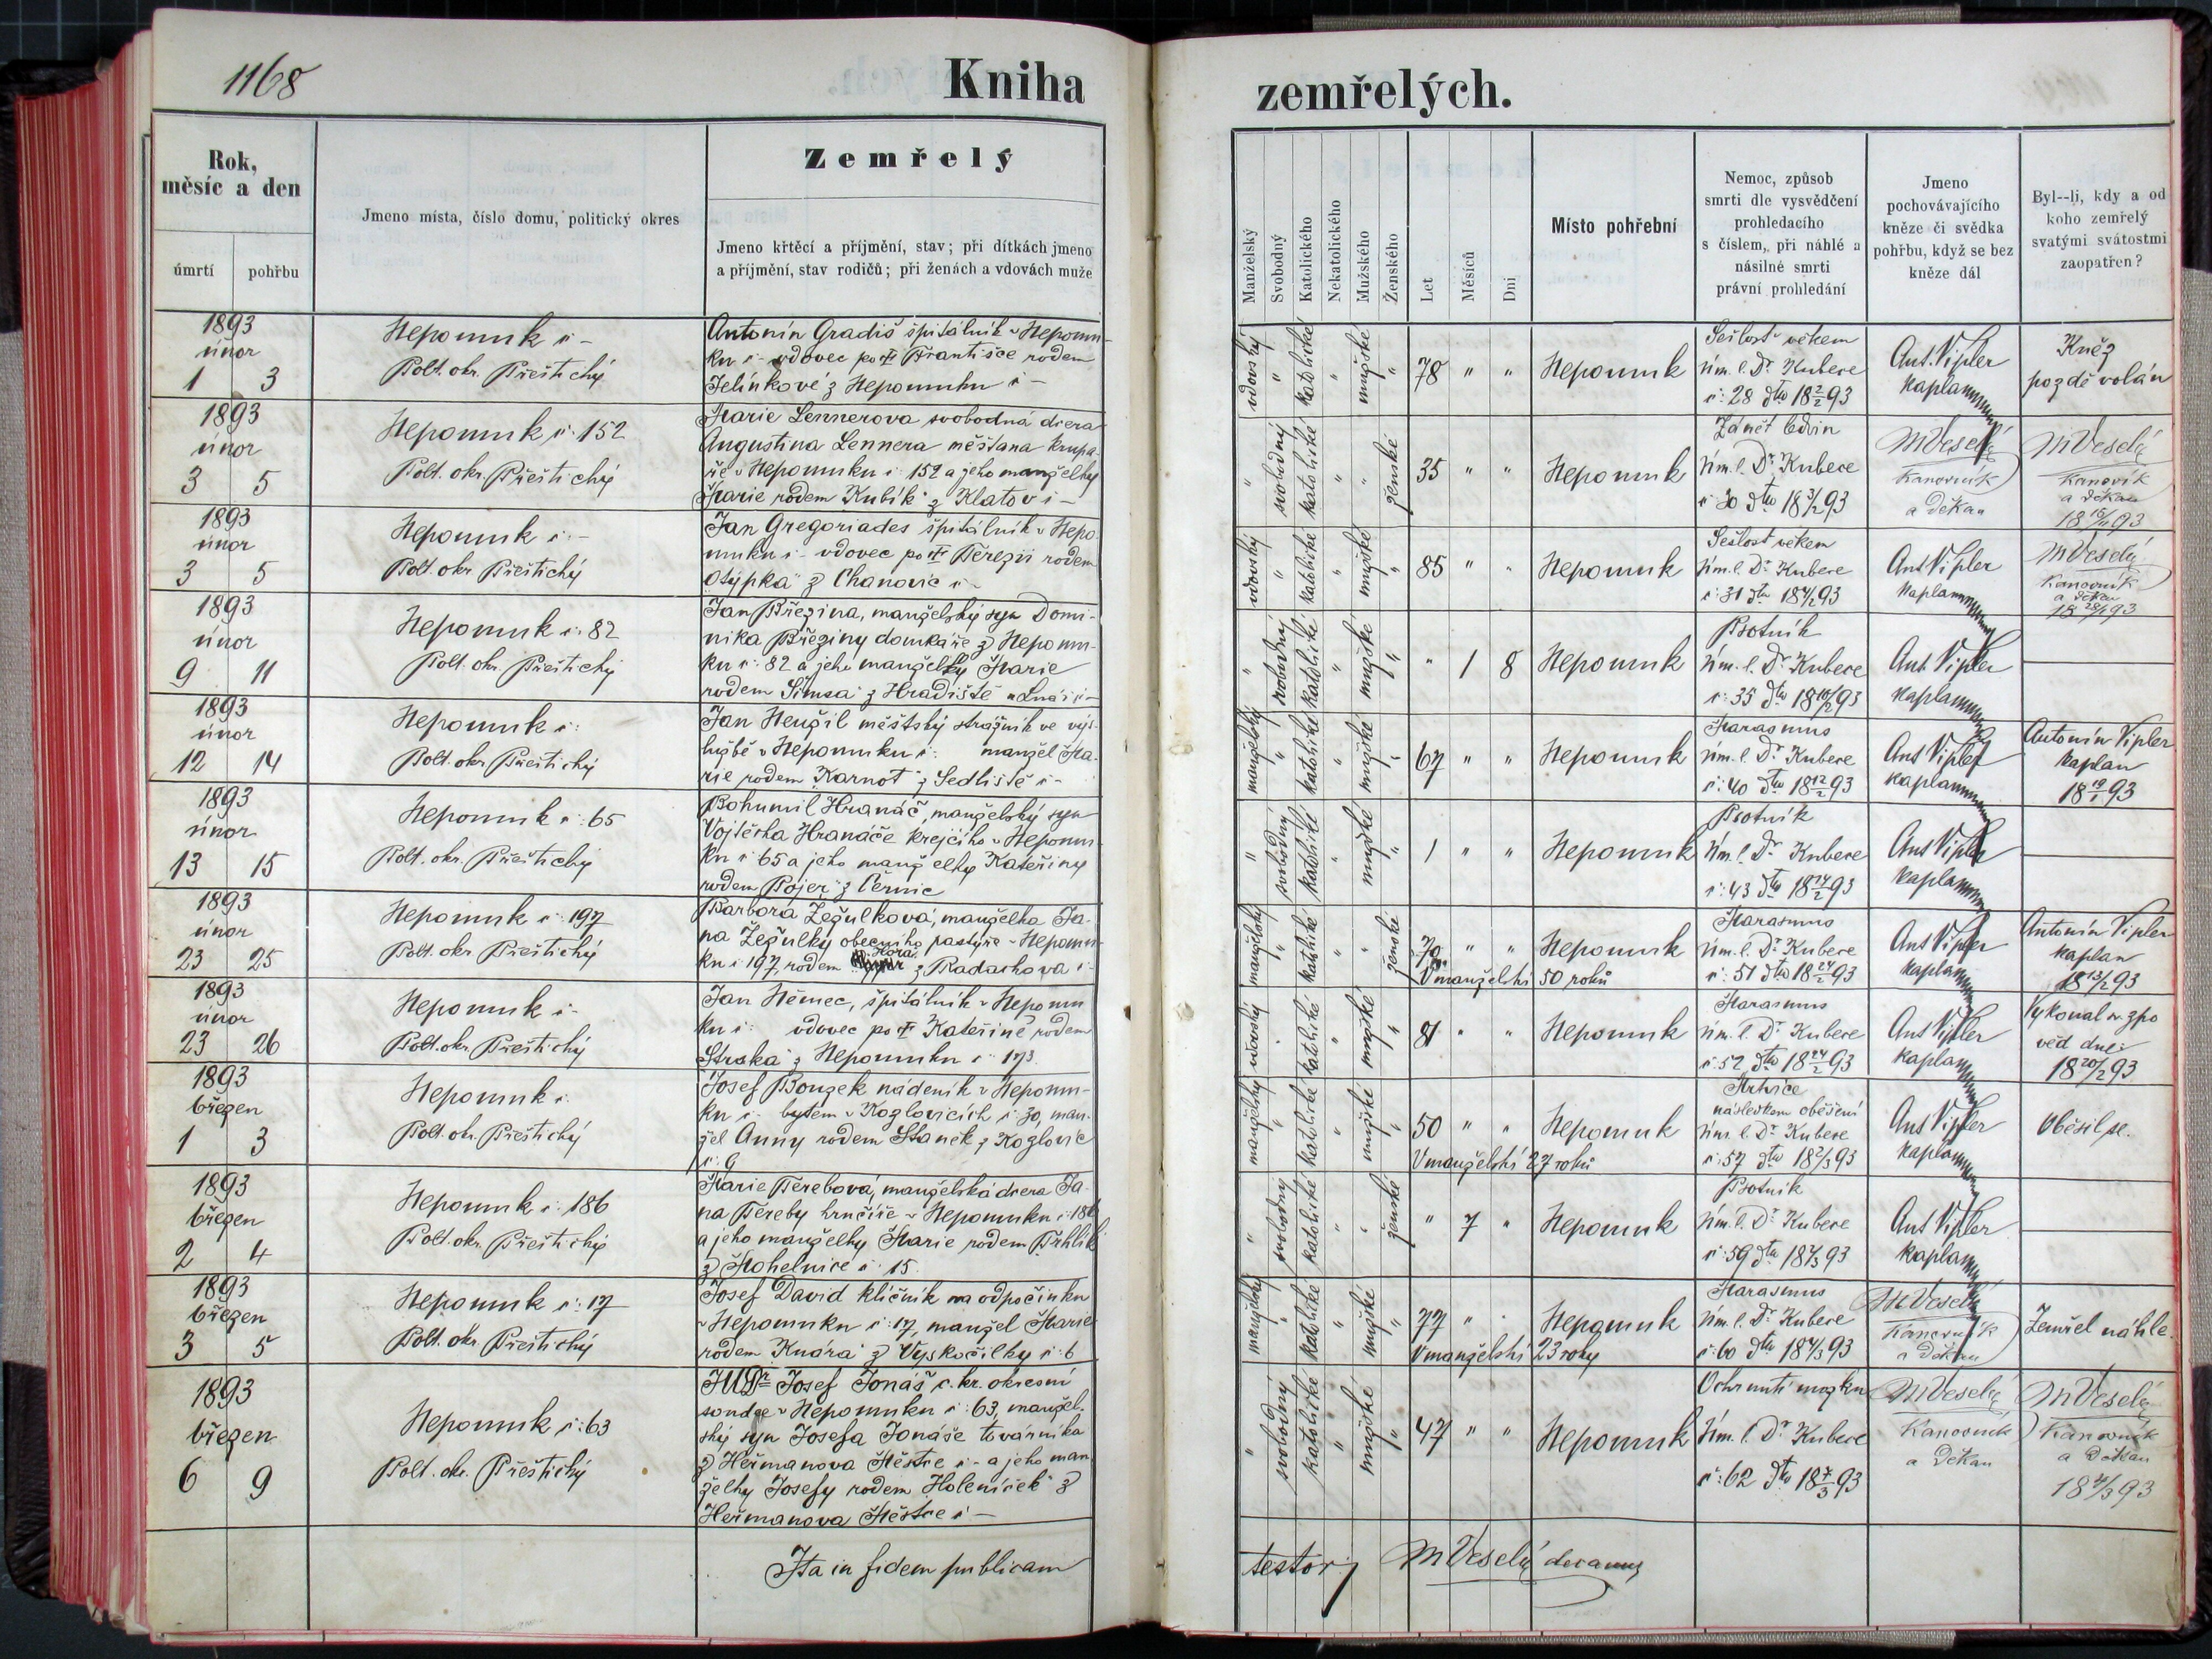 1168
Kniha
zemřelých.
Rok,
měsíc a den
úmrtí
pohřbu
Jmeno místa, číslo domu, politický okres
Zemřelý
Jmeno křtěcí a příjmění, stav; při dítkách jmeno
a příjmění, stav rodičů; při ženách a vdovách muže
Manželský
Svobodný
Katolického
Nekatolického
Mužského
Ženského
Let
Měsíců
Dní
Místo pohřební
Nemoc, způsob
smrti dle vysvědčení
prohledacího
s číslem, při náhlé a
násilné smrti
právní prohledání
Jmeno
pochovávajícího
kněze či svědka
pohřbu, když se bez
kněze dál
Byl--li, kdy a od
koho zemřelý
svatými svátostmi
zaopatřen?
1893
únor
1 3
Nepomuk č -
Polt. okr. Přeštický
Antonín Gradiš špitálník v Nepomu-
ku č - vdovec po Františce rodem
Jelínkové z Nepomuku č -
vdovský " katolické " mužské "
78 " "
Nepomuk
Sešlost věkem
Zim. l. Dr. Kubece
č: 28 dto 18 2/2 93
Ant. Vipler
kaplan
Kněz
pozdě volán
1893
únor
3 5
Nepomuk č. 152
Polt. okr. Přeštický
Marie Lennerova svobodná dcera
Augustina Lennera měšťana krupa-
ře v Nepomuku č: 152 a jeho manželky
Marie rodem Kubík z Klatov č -
" svobodný katolické " " ženské
35 " "
Nepomuk
Zánět ledvin
Zim. l. Dr. Kubece
č: 30 dto 18 3/2 93
M Veselý
Kanovník
a Děkan
M Veselý
Kanovík
a Děkan
18 15/1 93
1893
únor
3 5
Nepomuk č: -
Polt. okr. Přeštický
Jan Gregoriades špitálník v Nepo-
muku č - vdovec po Terezii rodem
Osypka z Chanovic č -
vdovský " katolické " mužské "
85 " "
Nepomuk
Sešlost věkem
Zim. l. Dr. Kubece
č: 31 dto 18 4/2 93
Ant Vipler
Kaplan
M Veselý
Kanovník
a Děkan
18 28/1 93
1893
únor
9 11
Nepomuk č: 82
Polt. okr. Přeštický
Jan Březina, manželský syn Domi-
nika Březiny domkáře z Nepomu-
ku č: 82 a jeho manželky Marie
rodem Šimsa z Hradiště u Lnář č -
" svobodný katolické " mužské "
" 1 8
Nepomuk
Psotník
Zim. l. Dr. Kubece
č: 35 dto 18 10/2 93
Ant. Vipler
kaplan
1893
únor
12 14
Nepomuk č:
Polt. okr. Přeštický
Jan Neužil městský strážník ve výs-
lužbě v Nepomuku č: manžel Ma-
rie rodem Karnot z Sedliště č -
manželský " katolické " mužské "
67 " "
Nepomuk
Marasmus
Zim. l. Dr. Kubece
č: 40 dto 18 12/2 93
Ant Vipler
kaplan
Antonín Vipler
kaplan
1893
únor
13 15
Nepomuk č: 65
Polt. okr. Přeštický
Bohumil Hranáč, manželský syn
Vojtěcha Hranáče krejčího v Nepomu-
ku č 65 a jeho manželky Kateřiny
rodem Pojer z Černic
" svobodný katolické " mužské "
1 " "
Nepomuk
Psotník
Zim. l. Dr. Kubece
č: 43 dto 18 14/2 93
Ant Vipler
kaplan
1893
únor
23 25
Nepomuk č: 197
Polt. okr. Přeštický
Barbora Žežulková, manželka Ja-
na Žežulky obecního pastýře v Nepomu-
ku č 197, rodem Hora z Radachova č -
manželský " katolické " " ženské
70 " "
V manželství 50 roků
Nepomuk
Marasmus
Zim. l. Dr. Kubece
č: 51 dto 18 24/2 93
Ant Vipler
kaplan
Antonín Vipler
kaplan
18 13/2 93
1893
únor
23 26
Nepomuk č -
Polt. okr. Přeštický
Jan Němec, špitálník v Nepomu
ku č: vdovec po Kateřině rodem
Straka z Nepomuku č 173.
vdovský " katolické " mužské "
81 " "
Nepomuk
Marasmus
Zim. l. Dr. Kubece
č: 52 dto 18 24/2 93
Ant Vipler
kaplan
Vykonal sv. zpo
věd dne:
18 20/2 93
1893
březen
1 3
Nepomuk č.
Polt. okr. Přeštický
Josef Bouzek nádeník v Nepomu-
ku č - bytem v Kozlovicích č 30, man-
žel Anny rodem Staněk z Kozlovic
č: 9
manželský " katolické " mužské "
50 " "
V manželství 27 roků
Nepomuk
Mrtvice
následkem oběšení
Zim. l. Dr. Kubece
č: 57 dto 18 2/3 93
Ant Vipler
kaplan
Oběsil se.
1893
březen
2 4
Nepomuk č: 186
Polt. okr. Přeštický
Marie Terebová, manželská dcera Ja-
na Tereby hrnčíře v Nepomuku č: 186
a jeho manželky Marie rodem Trhlík
z Mohelnice č: 15.
" svobodný katolické " " ženské
" 7 "
Nepomuk
Psotník
Zim. l. Dr. Kubece
č: 59 dto 18 4/3 93
Ant Vipler
kaplan
1893
březen
3 5
Nepomuk č: 17
Polt. okr. Přeštický
Josef David klíčník na odpočinku
v Nepomuku č: 17, manžel Marie
rodem Knora z Vyskočilky č: 6
manželský " katolické " mužské "
77 "
V manželství 23 roky
Nepomuk
Marasmus
Zim. l. Dr. Kubece
č: 60 dto 18 4/3 93
M Veselý
Kanovník
a Děkan
Zemřel náhle.
1893
březen
6 9
Nepomuk č: 63
Polt. okr. Přeštický
JUDr Josef Jonáš c. kr. okresní
soudce v Nepomuku č: 63, manžel-
ský syn Josefa Jonáše továrníka
z Heřmanova Městce č - a jeho man-
želky Josefy rodem Holeníček z
Heřmanova Městce č -
" svobodný katolické " mužské "
47 " "
Nepomuk
Ochrnutí mozku
Zim. l. Dr. Kubece
č: 62 dto 18 7/3 93
M Veselý
Kanovník
a Děkan
M Veselý
Kanovník
a Děkan
18 4/3 93
Ita in fidem publicam
testor M Veselý decanus